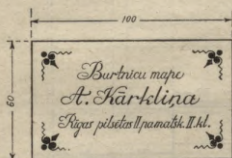 100
60
Burtnicu mape
A. Kārkliņa
Rīgas pilsētas II pamatsk. II. kl.